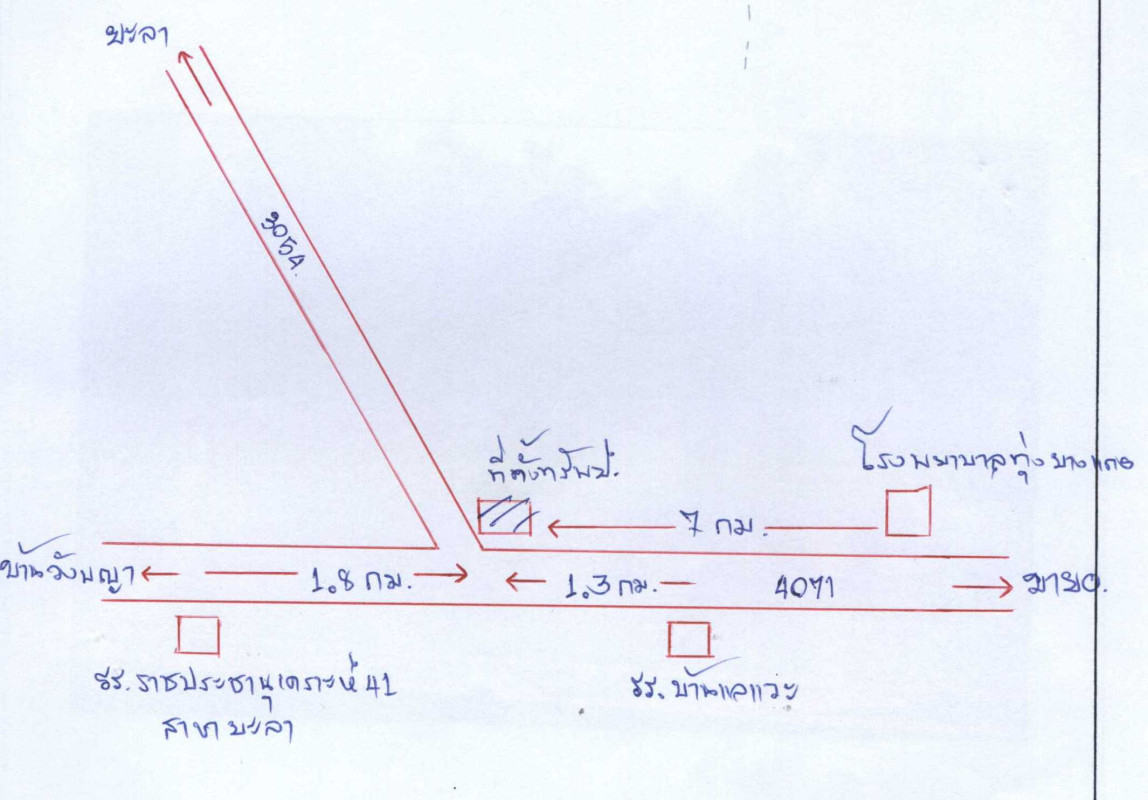 ยะลา
3054.
ที่ตั้งทรัพย์.
โรงพยาบาลทุ่งยางแดง
7 กม.
บ้านวังพญา
1.8 กม.
1.3 กม.
4071
มายอ.
รร. ราชประชานุเคราะห์ 41
สาขา ยะลา
รร. บ้านแลแวะ